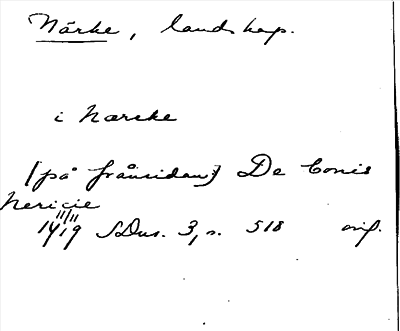 Närke, landskap.
i Narcke
[på frånsidan] De bonis
Nericie
11/11
1419 SDns. 3, s. 518 orig.